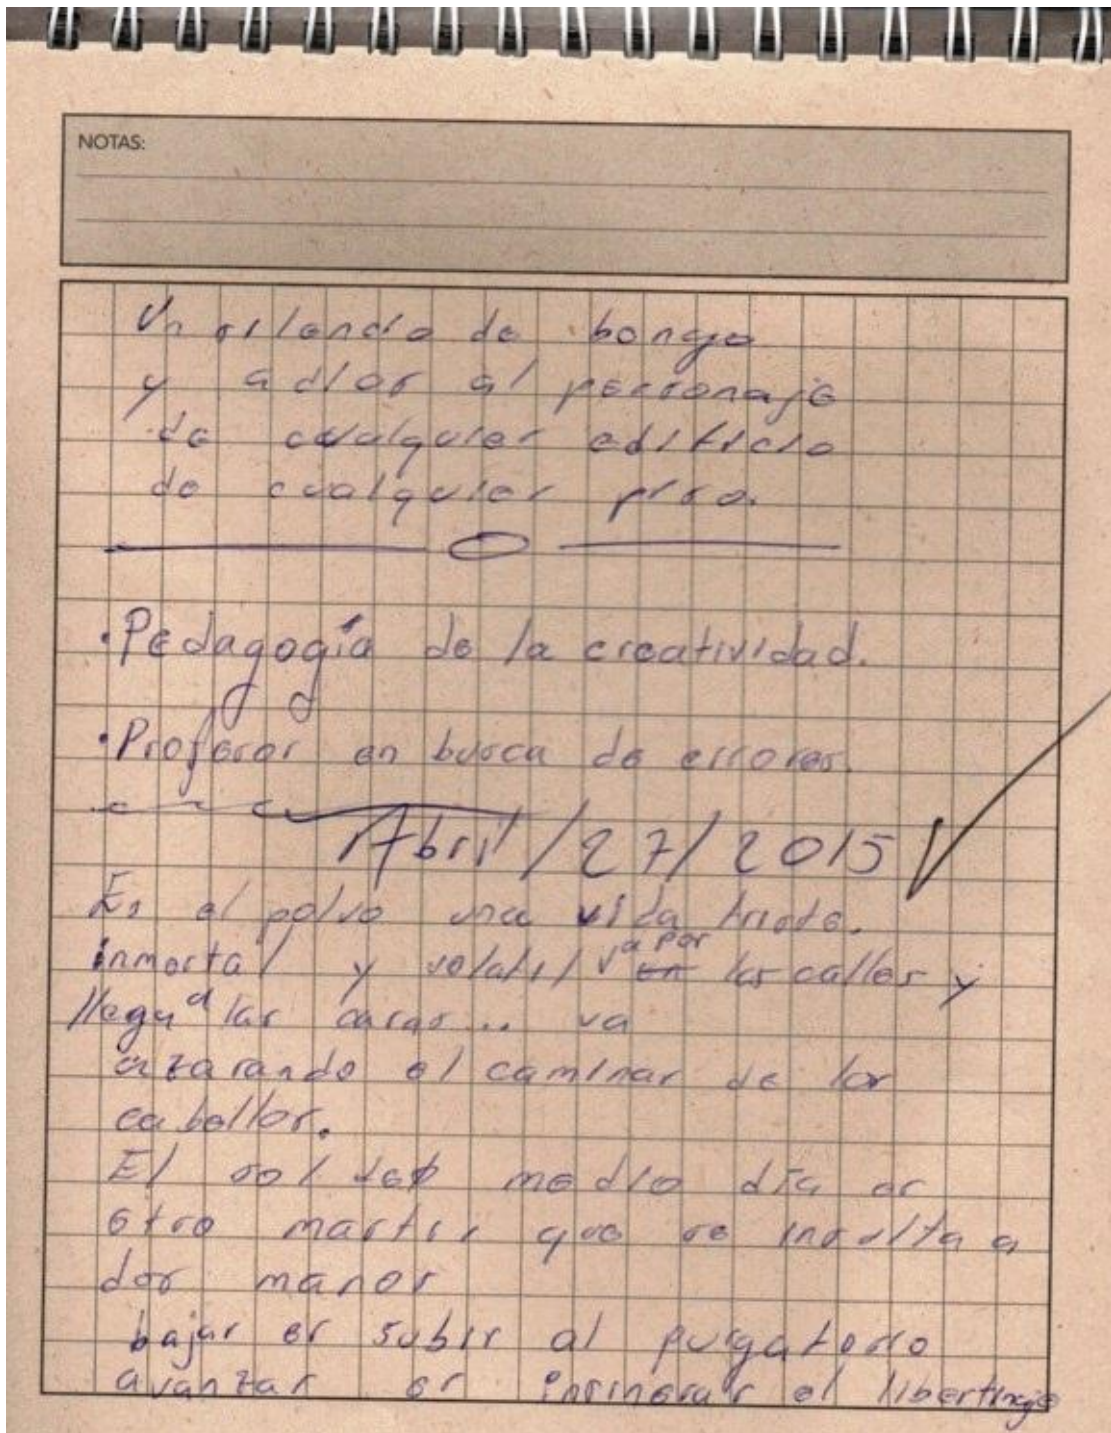 NOTAS:
Un silencio de bongo
y adios al personaje
de cualquier edificio
de cualquier piso.
• Pedagogía de la creatividad.
• Profesor en busca de errores.
Abril/27/2015
Es el polvo una vida triste.
inmortal y volatil va por en las calles y
llega a las caras... va
azarando el caminar de los
caballos.
El sol del medio día es
otro martir que se insulta a
dos manos
bajar es subir al purgatorio
avanzar es incinerar el libertinaje